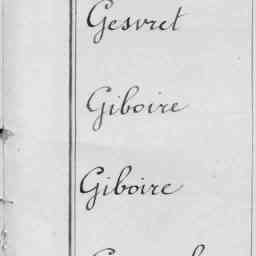 Gesvret
Giboire
Giboire